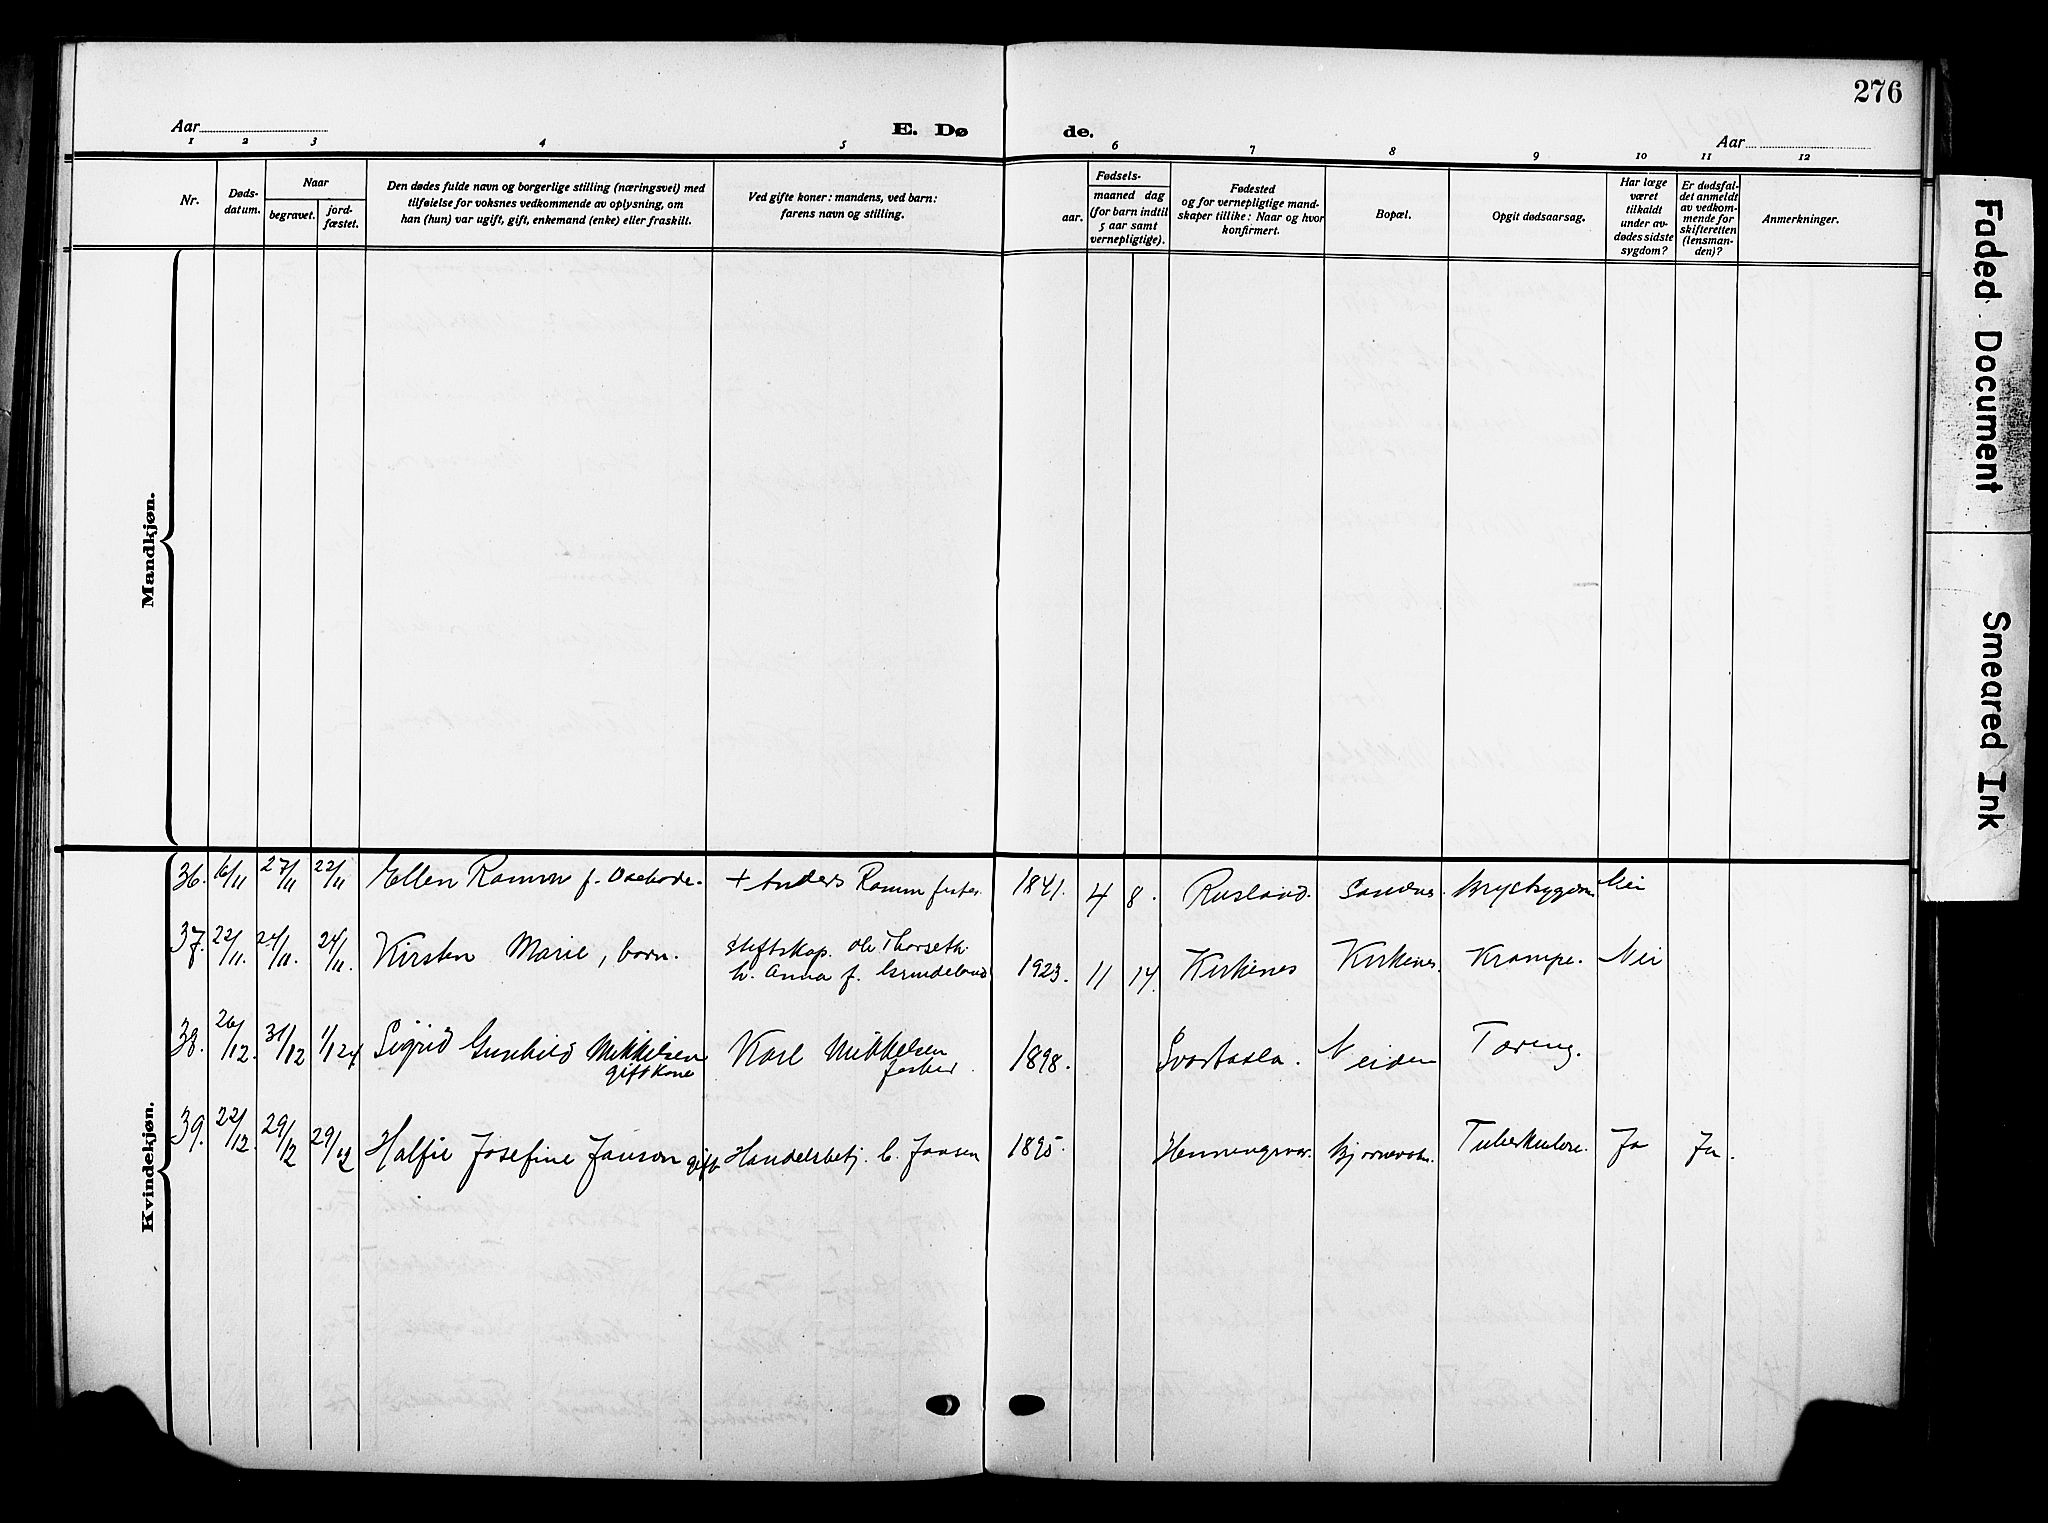 276
Aar
E. Dø de.
Aar
1 2 3 4 5 6 7 8 9 10 11 12
Nr.
Døds-
datum.
Naar
begravet.
jord-
fæstet.
Den dødes fulde navn og borgerlige stilling (næringsvei) med
tilføielse for voksnes vedkommende av oplysning, om
han (hun) var ugift, gift, enkemand (enke) eller fraskilt.
Ved gifte koner: mandens, ved barn:
farens navn og stilling.
Fødsels-
aar.
maaned dag
(for barn indtil
5 aar samt
vernepligtige).
Fødested
og for vernepligtige mand-
skaper tillike: Naar og hvor
konfirmert.
Bopæl.
Opgit dødsaarsag.
Har læge
været
tilkaldt
under av-
dødes sidste
sygdom?
Er dødsfal-
det anmeldt
av vedkom-
mende for
skifteretten
(lensman-
den)?
Anmerkninger.
Mandkjøn.
Kvindekjøn.
36. 16/11 27/11 27/11 Ellen Ramm f. + Anders Ramm fisker 1841. 4 8. Rusland. Sandnes. Brystsygdom Nei
37. 22/11 24/11. 24/11. Kirsten Marie, barn. Ole Thorseth
h. Anna f. 1923. 11 14. Kirkenes Kirkenes. Krampe. Nei
38. 26/12. 31/12 1/1 24 Sigrid Gunhild Mikkelsen Karl Mikkelsen 1898. Neiden Tæring.
gift kone fisker.
39. 22/12. 29/12 29/12 Halfie Josefine Jansen gift Handelsbetj. C. Jansen 1895. Henningsvær. Bjørnevatn. Tuberkulose. Ja Ja.
Faded Document
Smeared Ink